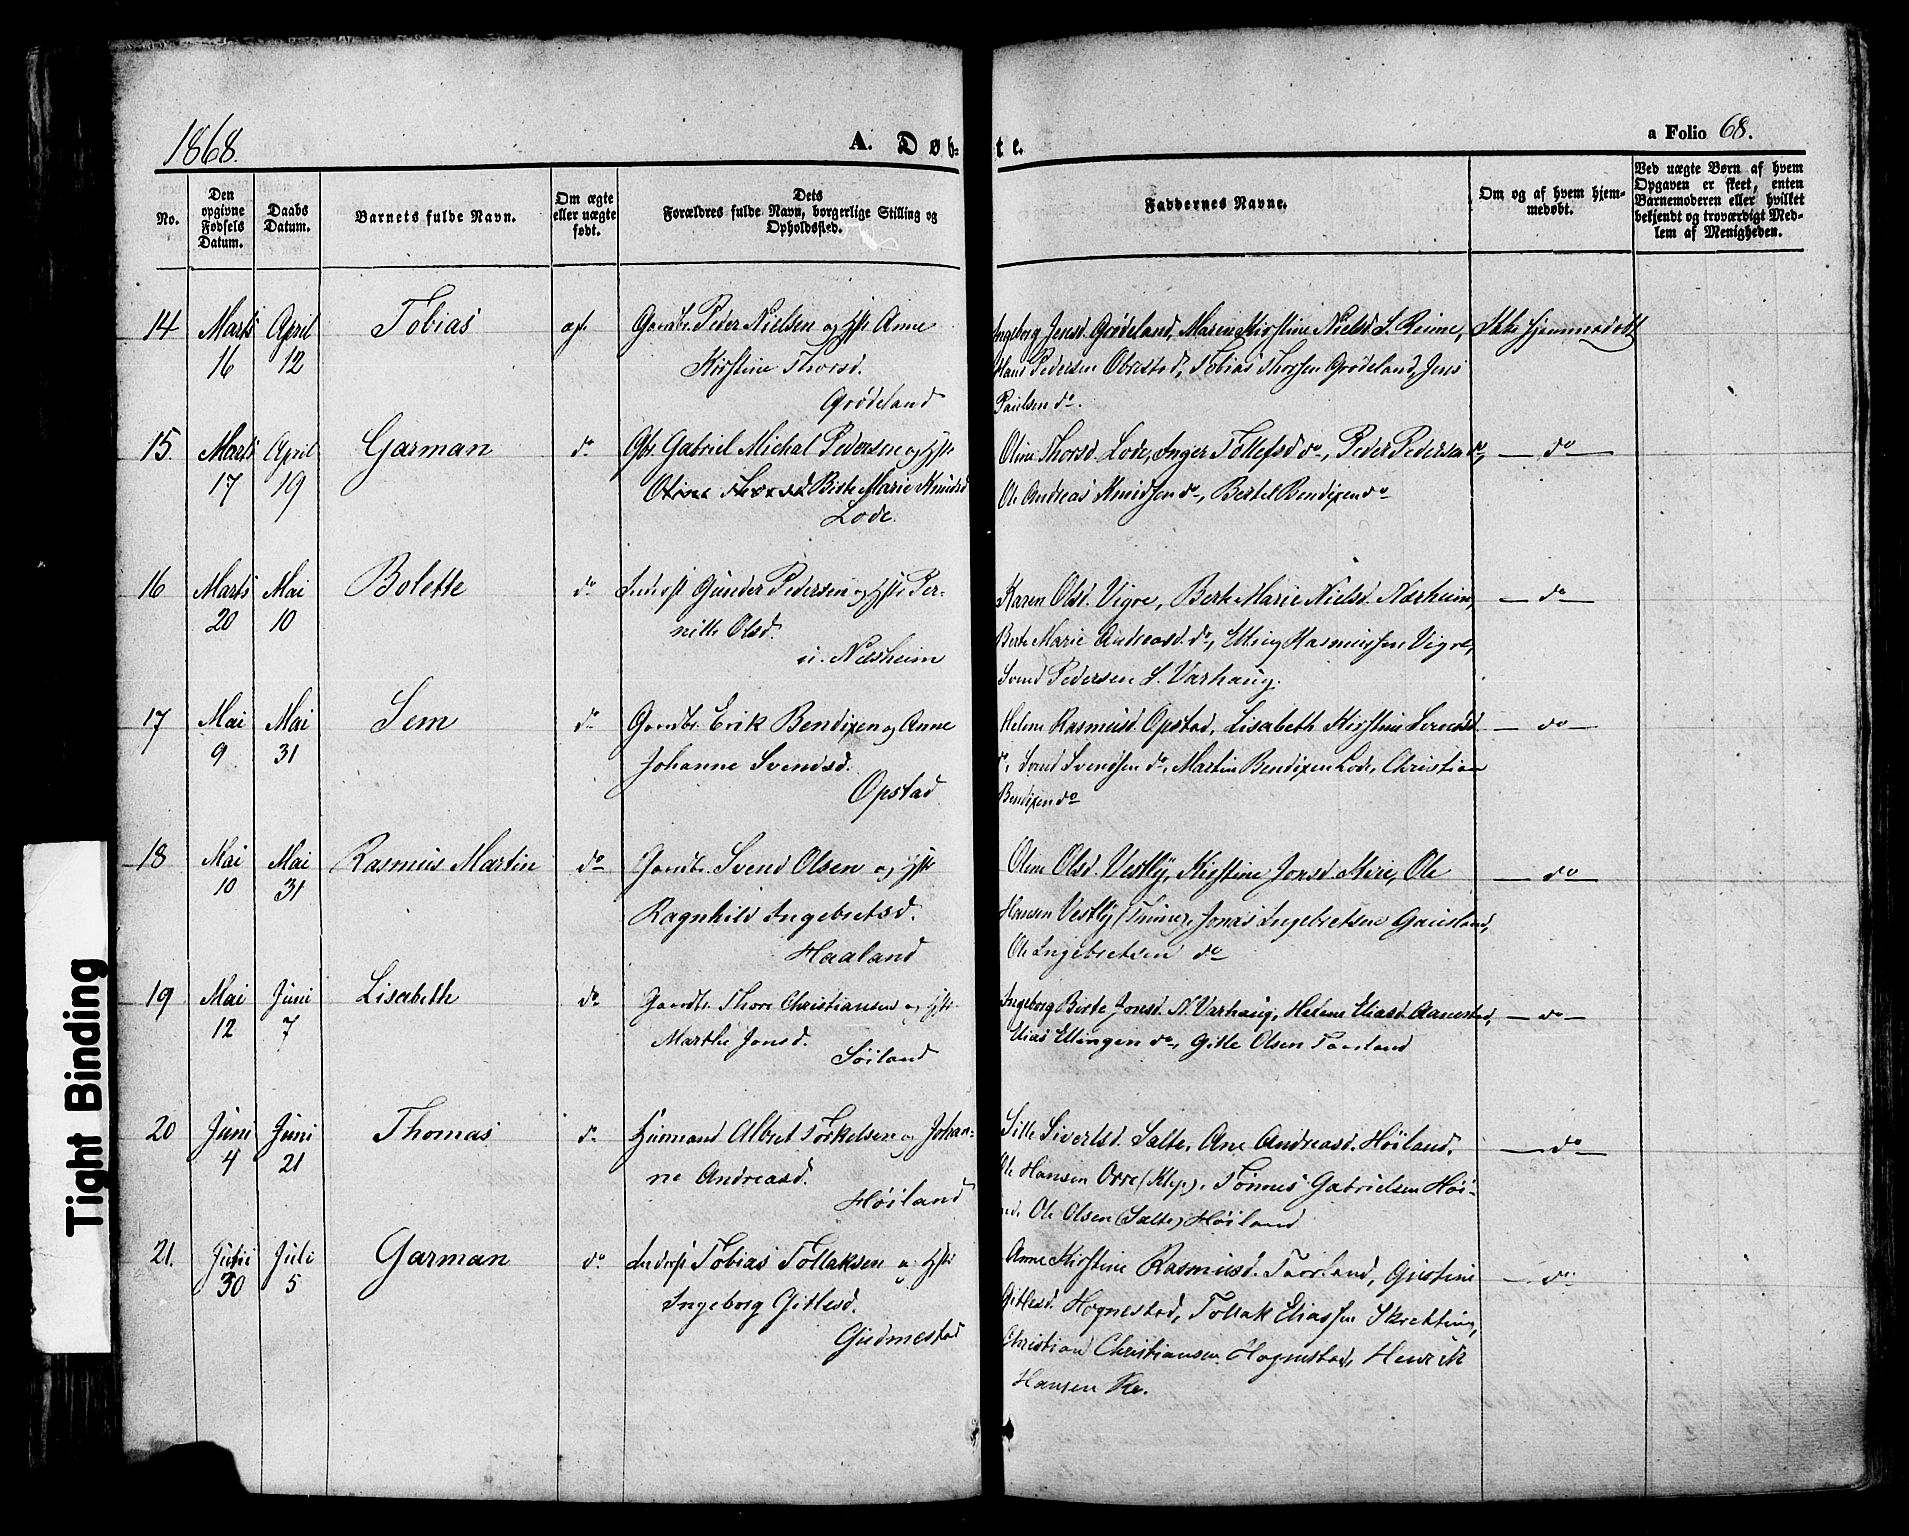 1868.
A. Døb-
te.
a Folio 68.
No.
Den opgivne Fødsels Datum.
Daabs Datum.
Barnets fulde Navn.
Om ægte eller uægte født.
Dets Forældres fulde Navn, borgerlige Stilling og Opholdssted.
Faddernes Navne.
Om og af hvem hjemmedøbt.
Ved uægte Børn af hvem Opgaven er skeet, enten Barnemoderen eller hvilket bekjendt og troværdigt Medlem af Menigheden.
14 Marts 16 April 12 Tobias
Gaardbr. Peder Nielsen og Hst. Anne
Kirstine Thorsd.
Grødeland
Ingeborg Jensd. Grødeland, Maren Kirstine Nielsd. S. Reime,
Hans Pedersen Obrestad, Tobias Thorsen Grødeland, Jens
Paulsen do.
Ikke hjemmedøbt
15. Marts 17 April 19 Garman do
Gbr. Gabriel Michal Pedersen og Hst.
Oline Thorsd Berte Marie Knudsd
Lode.
Oline Thorsd. Lode, Inger Tollefsd do, Peder Pedersen do,
Ole Andreas Knudsen do, Bertel Bendixen do
do
16 Marts 20 Mai 10 Bolette do
Gunder Pedersen og Hst. Per-
nille Olsd.
Karen Olsd. Vigre, Berte Marie Nielsd. Nærheim,
Berte Marie Andreasd. do, Elling Rasmussen Vigre,
Svend Pedersen S. Varhaug.
do
17 Mai 9 Mai 31 Sem do
Gaardbr. Erik Bendixen og Anne
Johanne Svendsd.
Opstad
Helene Rasmusd. Opstad, Lisabeth Kirstine Svendsd.
do, Svend Svendsen do, Martin Bendixen Lode, Christian
Bendixen do
do
18 Mai 10 Mai 31 Rasmus Martin do
Gaardbr. Svend Olsen og Hst.
Ragnhild Ingebretsd.
Haaland
Olene Olsd. Vestly, Kirstine Jonsd. Ole
Hansen Vestly (Time), Jonas Ingebretsen Gausland,
Ole Ingebretsen do
do
19 Mai 12 Juni 7 Lisabeth do
Gaardbr. Thore Christiansen og Hst.
Marthe Jonsd.
Søiland
Ingeborg Birte Jonsd. N. Varhaug, Helene Eliasd. Aanestad,
Elias Ellingsen do, Gitle Olsen Taarland
do
20 Juni 4 Juni 21 Thomas do
Huusmand Albret Torkelsen og Johan-
ne Andreasd.
Høiland
Sille Sivertsd. Salte, Ane Andreasd. Høiland,
Ole Hansen Orre (Klep), Tønnes Gabrielsen Høi-
Ole Olsen (Salte) Høiland
do
21. Juni 30 Juli 5 Garman do
Tobias Tollaksen og Hst.
Ingeborg Gitlesd.
Gudmestad
Anne Kirstine Rasmusd. Taarland, Gustine
Gitlesd. Hognestad, Tollak Eliassen Skretting,
Christian Christiansen Hognestad, Henrik
Hansen
do
Tight Binding